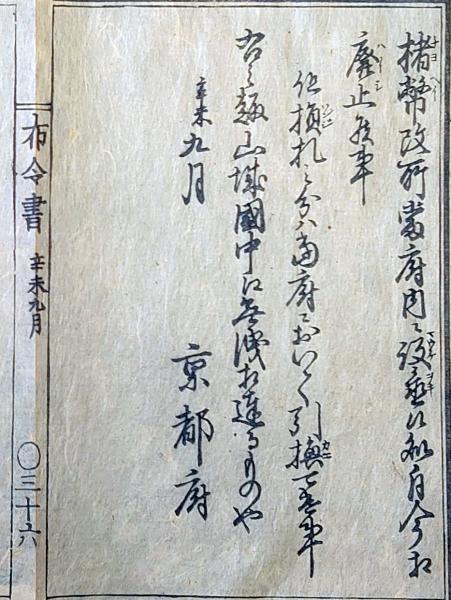 楮幣改所當府内ニ設置候処自今相
廢止候事
但損札之分ハ當府ニおいて引換可遣事
右之趣山城國中江無洩相達るもの也
辛未九月
京都府
布令書 辛未九月 〇三十六